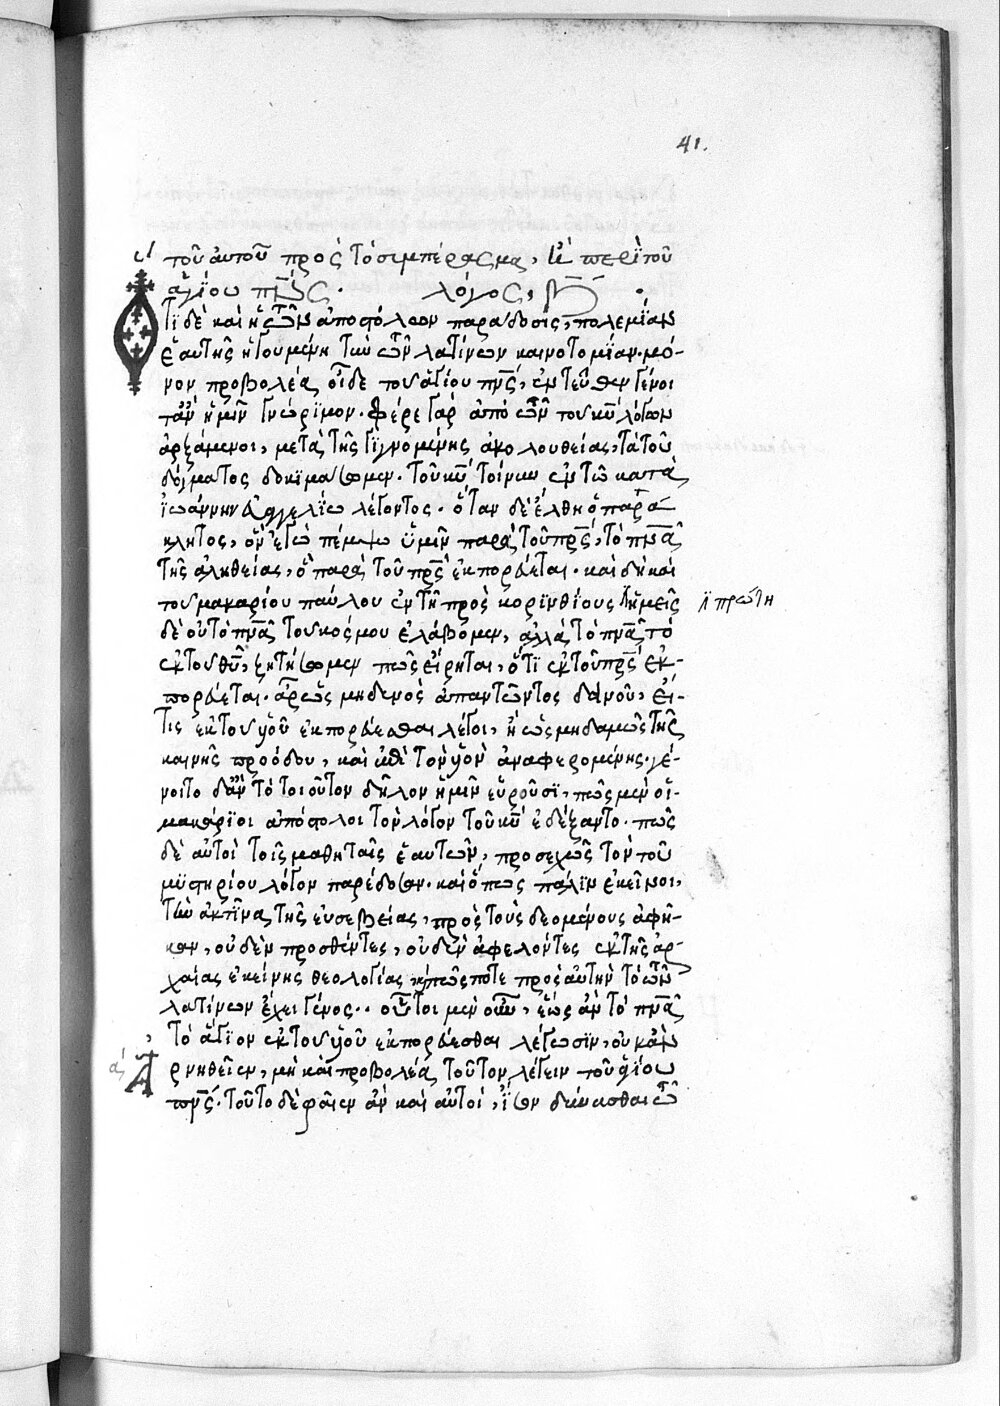 41.
τοῦ αὐτοῦ πρὸς τὸ συμπέρασμα, περὶ τοῦ
ἁγίου πν̅ς. λόγος,
Ὅτι δὲ καὶ ἡ τῶν ἀποστόλων παράδοσις, πολεμίαν
ἑαυτῆς ἡγουμένη τὴν τῶν λατίνων καινοτομίαν. μό-
νον προβολέα οἶδε τοῦ ἁγίου πν̅ς, ἐντεῦθεν γένοι
τἂν ἡμῖν γνώριμον. φέρε γὰρ ἀπὸ τῶν τοῦ κυ̅ λόγων
ἀρξάμενοι, μετὰ τῆς γιγνομένης ἀκολουθείας, τὰ τοῦ
δόγματος δοκιμάσωμεν. τοῦ κυ̅ τοίνυν ἐν τῷ κατὰ
ἰωάννην εὐαγγελίω λέγοντος. ὅταν δὲ ἔλθη ὁ παρά-
κλητος, ὃν ἐγὼ πέμψω ὑμῖν παρὰ τοῦ πρ̅ς, τὸ πν̅α
τῆς ἀληθείας, ὃ παρὰ τοῦ πρ̅ς ἐκπορεύεται. καὶ δὴ καὶ
τοῦ μακαρίου παύλου ἐν τῇ πρὸς κορινθίους ἡμεῖς
ἡ πρώτη
δὲ οὐ τὸ πν̅α τοῦ κόσμου ἐλάβομεν, ἀλλὰ τὸ πν̅α τὸ
ἐκ τοῦ θυ̅, ζητήσωμεν πῶς εἴρηται, ὅτι ἐκ τοῦ πρ̅ς ἐκ-
πορεύεται. ἆρ ὡς μηδενὸς ἀπαντῶντος δεινοῦ, εἴ-
τις ἐκ τοῦ υἱοῦ ἐκπορεύεσθαι λέγοι, ἢ ὡς μηδαμῶς τῆς
κοινῆς προόδου, καὶ ἐπὶ τὸν υἱὸν ἀναφερομένης. γέ-
νοιτο δἂν τὸ τοιοῦτον δῆλον ἡμῖν εὑροῦσι, πῶς μὲν οἱ
μακάριοι ἀπόστολοι τὸν λόγον τοῦ κυ̅ ἐδέξαντο. πῶς
δὲ αὐτοὶ τοῖς μαθηταῖς ἑαυτῶν, προσεχῶς τὸν τοῦ
μυστηρίου λόγον παρέδοσαν. καὶ ὅπως πάλιν ἐκεῖνοι,
τὴν ἀκτῖνα τῆς εὐσεβείας, πρὸς τοὺς δεομένους ἀφῆ-
καν, οὐδὲν προσθέντες, οὐδὲν ἀφελόντες ἐκ τῆς ἀρ-
χαίας ἐκείνης θεολογίας, πῶς ποτε πρὸς αὐτὴν τὸ τῶν
λατίνων ἔχει γένος.. οὗτοι μὲν οὖν, ἕως ἂν τὸ πν̅α
τὸ ἅγιον ἐκ τοῦ υἱοῦ ἐκπορεύεσθαι λέγωσιν, οὐκ ἂν
ἀ
Ἀρνηθεῖεν, μὴ καὶ προβολέα τοῦτον λέγειν τοῦ ἁγίου
πν̅ς. τοῦτο δὲ φαῖεν ἂν καὶ αὐτοί,